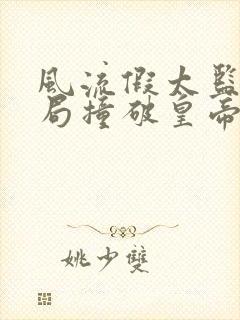 風流假太監
局撞破皇帝
姚少雙